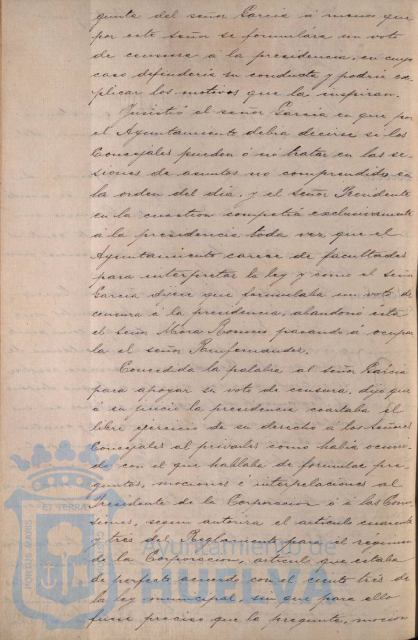 gunta del señor Garcia á menos que
por este señor se formulára un voto
de censura á la presidencia, en cuyo
caso defenderia su conducta y podria es-
plicar los motivos que la inspiran.
Insistió el señor Garcia en que por
el Ayuntamiento debia decirse si los
Concejales pueden ó no tratar en las se-
siones de asuntos no comprendidos en
la orden del dia, y el Señor Presidente
en la cuestion competia exclusivamente
á la presidencia toda vez que el
Ayuntamiento carece de facultades
para interpretar la ley y como el señor
Garcia dijera que formulaba un voto de
censura á la presidencia, abandonó esta
el señor Mora Romero pasando á ocupar
la el señor
Concedida la palabra al señor Garcia
para apoyar su voto de censura, dijo que
á su juicio la presidencia coartaba el
libre ejercicio de su derecho á los Señores
Concejales al privarles como habia ocurri-
do con el que hablaba de formular pre-
guntas, mociones é interpelaciones al
Presidente de la Corporacion ó á las Comi-
siones, segun autoriza el articulo cuarenta
y tres del Reglamento para el regimen
de la Corporacion, articulo que estaba
de perfecto acuerdo con el ciento tres de
la ley municipal, sin que para ello
fuese preciso que la pregunta, mocion
PORTUS MARIS ET TERRAE
Ayuntamiento de
HUELVA